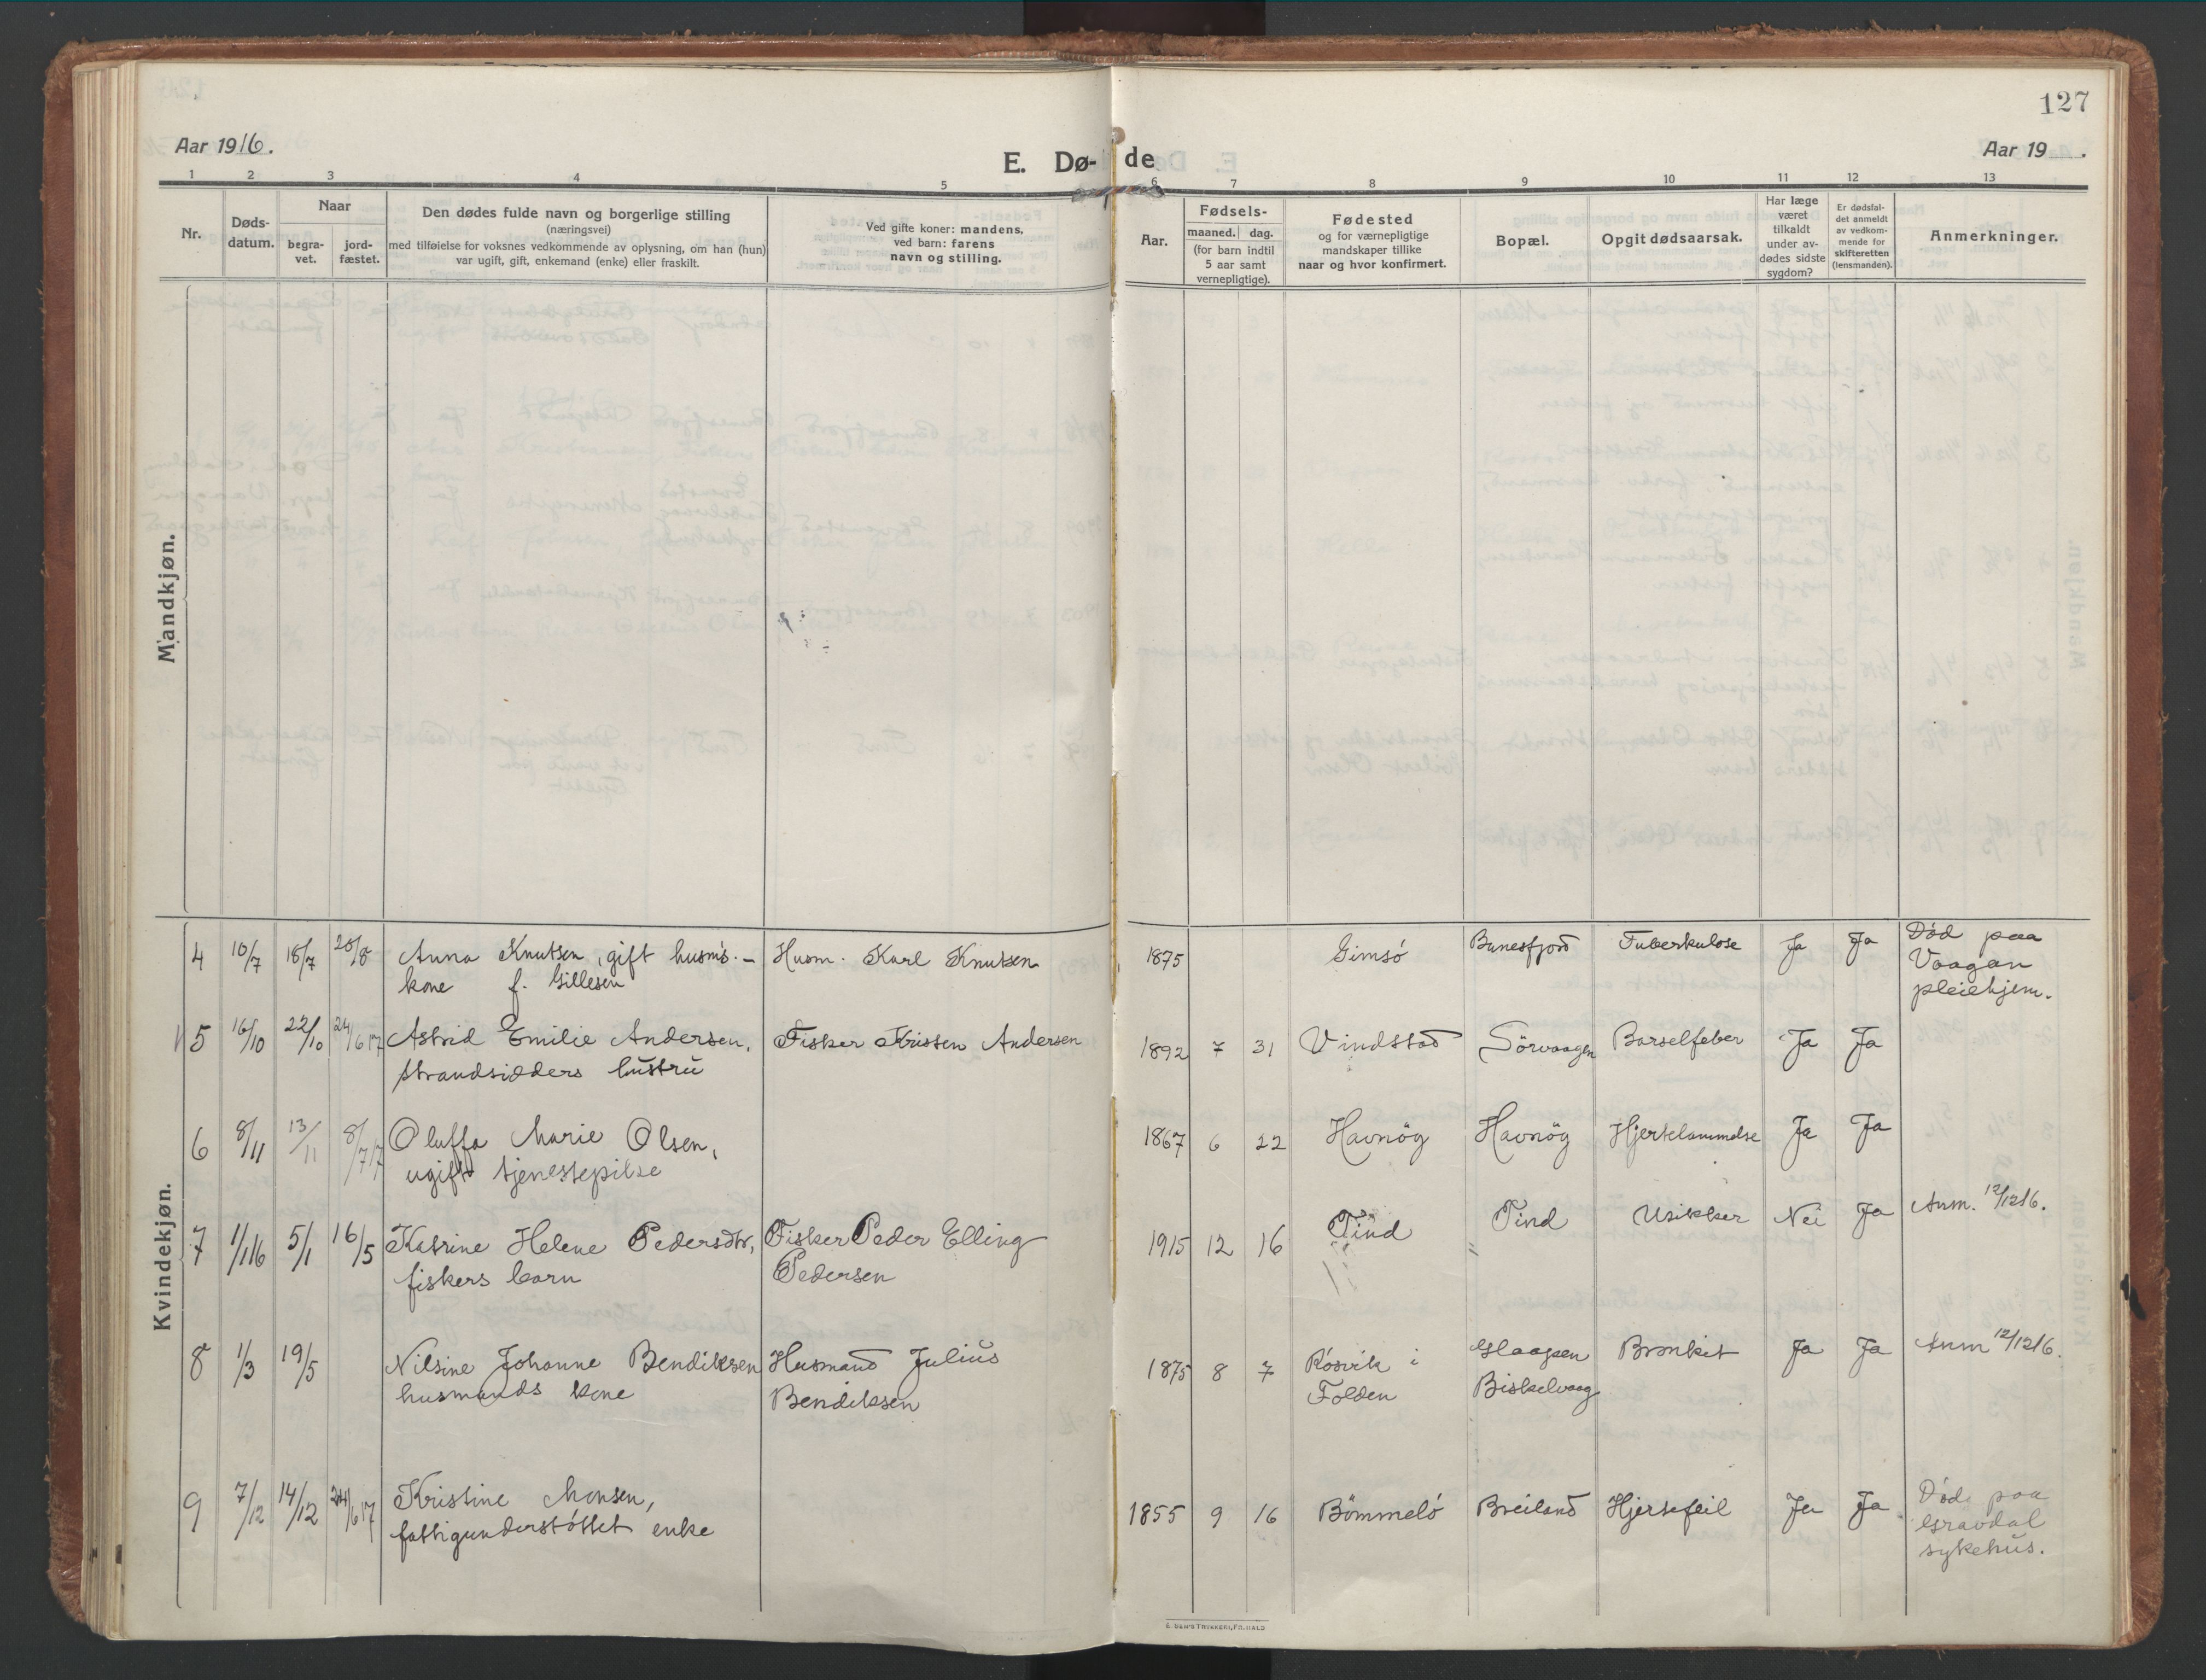 127
Aar 1916.
E. Dø- de
Aar 19 .
1 2 3 4 5 6 7 8 9 10 11 12 13
Nr.
Døds-
datum.
Naar
begra-
vet.
jord-
fæstet.
Den dødes fulde navn og borgerlige stilling
(næringsvei)
med tilføielse for voksnes vedkommende av oplysning, om han (hun)
var ugift, gift, enkemand (enke) eller fraskilt.
Ved gifte koner: mandens,
ved barn: farens
navn og stilling.
Aar.
Fødsels-
maaned. dag.
(for barn indtil
5 aar samt
vernepligtige).
Fødested
og for værnepligtige
mandskaper tillike
naar og hvor konfirmert.
Bopæl.
Opgit dødsaarsak.
Har læge
været
tilkaldt
under av-
dødes sidste
sygdom?
Er dødsfal-
det anmeldt
av vedkom-
mende for
skifteretten
(lensmanden).
Anmerkninger.
Mandkjøn.
Kvindekjøn.
4 10/7 18/7 20/8 Anna Knutsen, gift husm's.- Husm. Karl Knutsen 1875 Gimsö Bunesfjord Tuberkulose Ja Ja Död paa
kone f. Gillesen Vaagan
pleiehjem.
5 16/10 22/10 24/6 17 Astrid Emilie Andersen, Fisker Kristen Andersen 1892 7 31 Vindstad Sörvaagen Barselfeber Ja Ja
strandsidders hustru
6 8/11 13/11 8/7 17 Oluffa Marie Olsen, 1867 6 22 Havnög Havnög Hjertelammelse Ja Ja
ugift tjenestepike
7 1/1 16 5/1 16/5 Katrine Helene Pedersdtr, Fisker Peder Elling 1915 12 16 Tind Tind Usikker Nei Ja Anm. 12/12 16.
fiskers barn Pedersen
8 1/3 19/5 Nilsine Johanne Bendiksen Husmand Julius 1875 8 7 Rösvik i Bronkit Ja Ja Anm 12/12 16.
husmands kone Bendiksen Folden Biskelvaag
9 7/12 14/12 24/6 17 Kristine Monsen, 1855 9 16 Bömmelö Breiland Hjertefeil Ja Ja Döde paa
fattigunderstöttet enke Gravdal
sykehus.
E. SEM'S TRYKKERI, FR.HALD